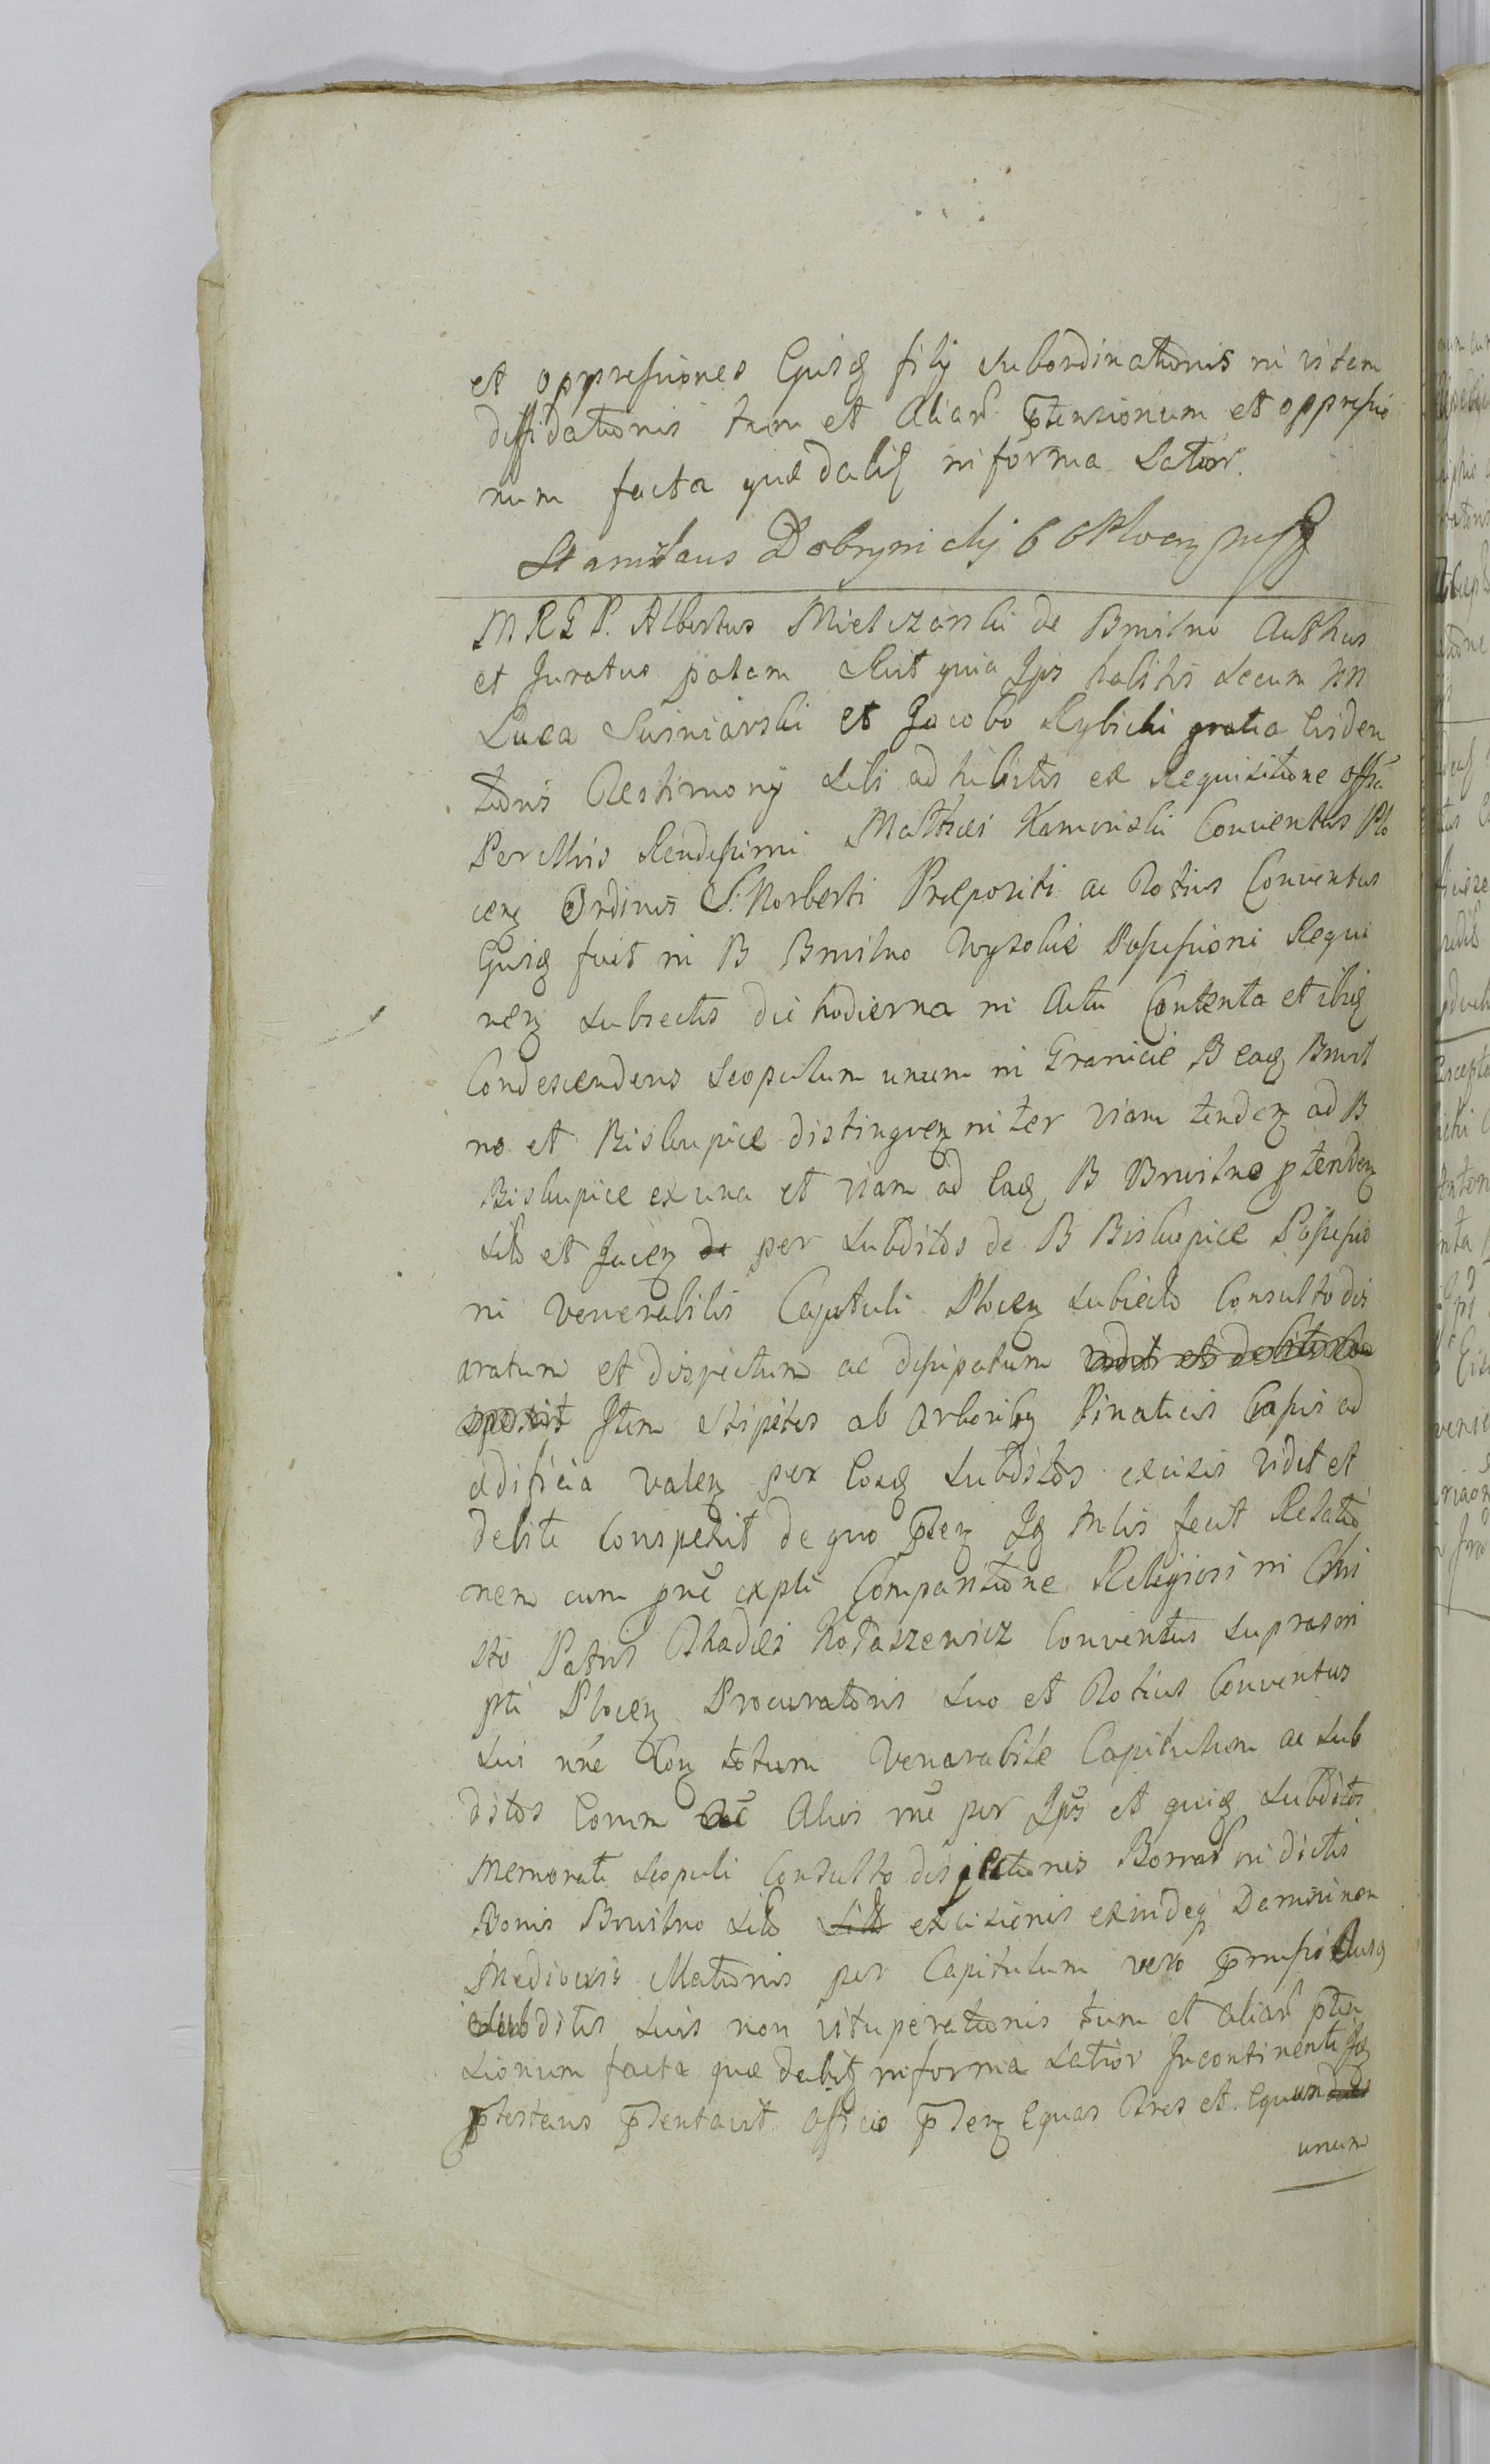 et oppressiones Ejusq filij subordinationis in vitam
diffidationis tum et Aliar ptensionum et oppressio
num facta quæ dalis in forma Latior.
Stanislaus Dobrynichij
M R G P. Albertus Mielczarski de Brwilno Authus
et Juratus palam Rlit quia Ips habitis secum NN
Luca Susniarski et Jacobo Rybicki gratia Eviden
tioris Testimonij sibi adhibitis ex Requisitione offa
Perillris Rendissimi Matthæi Kaminski Conventus Plo
cen Ordinis S. Norberti Præpositi ac Totius Conventus
Ejusq fuit in B Brwilno Wysokie Possessioni Requi
ren subiectis die hodierna in Actu Contenta et ibiq
Condescendens scopulum unum in Granicie B eaq Brwil
no et Biskupice distinguen inter viam tenden ad B
Biskupice ex una et viam ad Eaq B Brwilno ptenden
sito et Jacen de per subditos de B Biskupice Possessio
ni venerabilis Capituli Plocen subiecto Consulto dis
aratum et disjectum ac dissipatum vidit et debite con
spexit Item stipites ab Arboribq Pinaticis Capis ad
ædificia valen per Eosq subditos excisis vidit et
debite conspexit de quo pten Iq Mlis fecit Relatio
nem cum pné expti Comparitione Religiosi in Chri
sto Patris Thadæi Kotaszewicz Conventus suprascri
pti Plocen Procuratoris suo et Totius Conventus
sui nné Con totum Venerabile Capitulum ac sub
ditos Eorum Aliis mé per Ips et quiq subditos
memorati scopuli Consulto disjectionis Borrae in dictis
Bonis Brwilno sito sito excisionis exindeq Damni non
mediocris Illationis per Capitulum vero pmissi
subditis suis non vituperationis tum et aliar pten
sionum facta quæ dabit in forma Latior Incontinenti Iq
ptestans ptentavit officio pten Equas Tres et Equum
unum